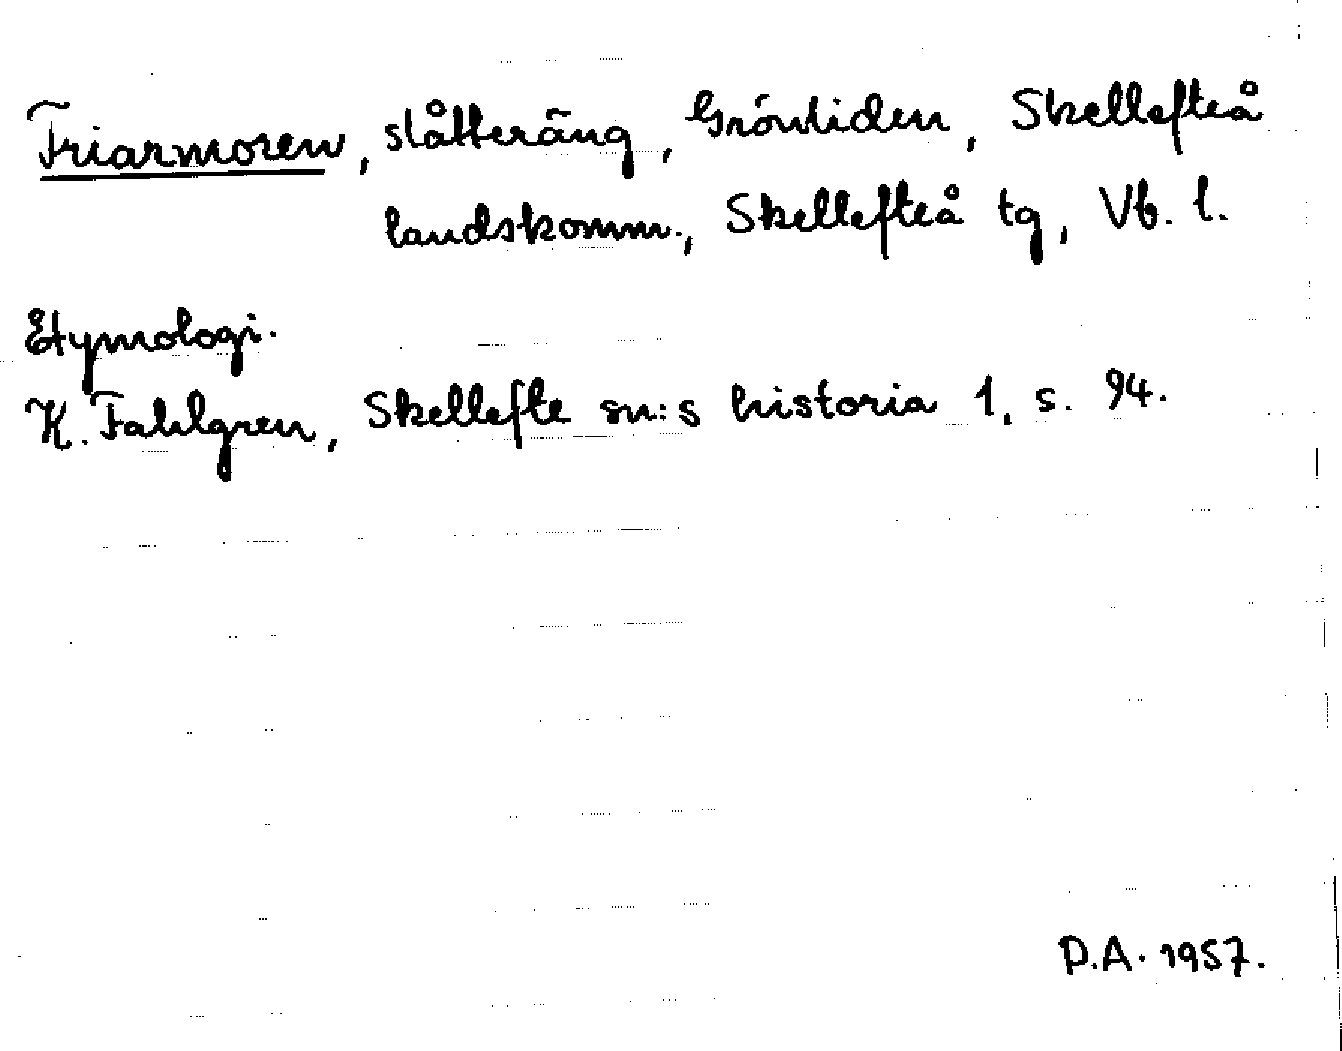 Friarmoren, slåtteräng, Grönliden, Skellefteå
landskomm., Skellefteå tg, Vb. l.
Etymologi.
K. Fahlgren, Skellefte sn:s historia 1, s. 94.
P.A. 1957.